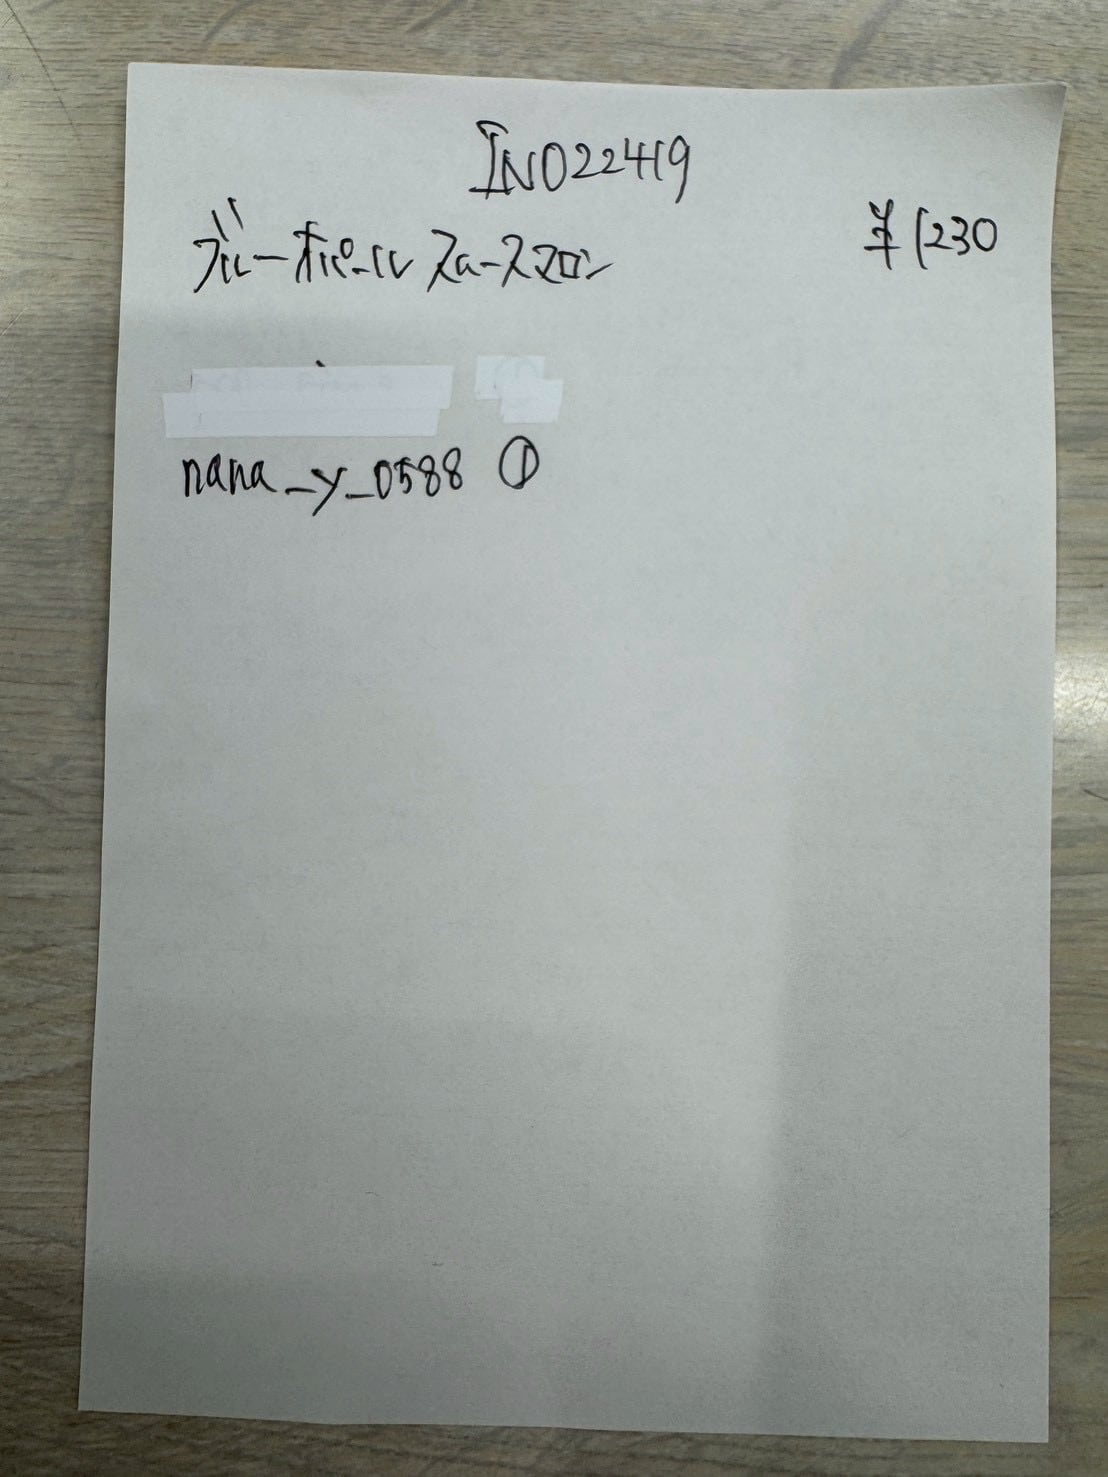 INO22419
ブルーポパール スムースマロン
¥1230
nana_y_0588 ①